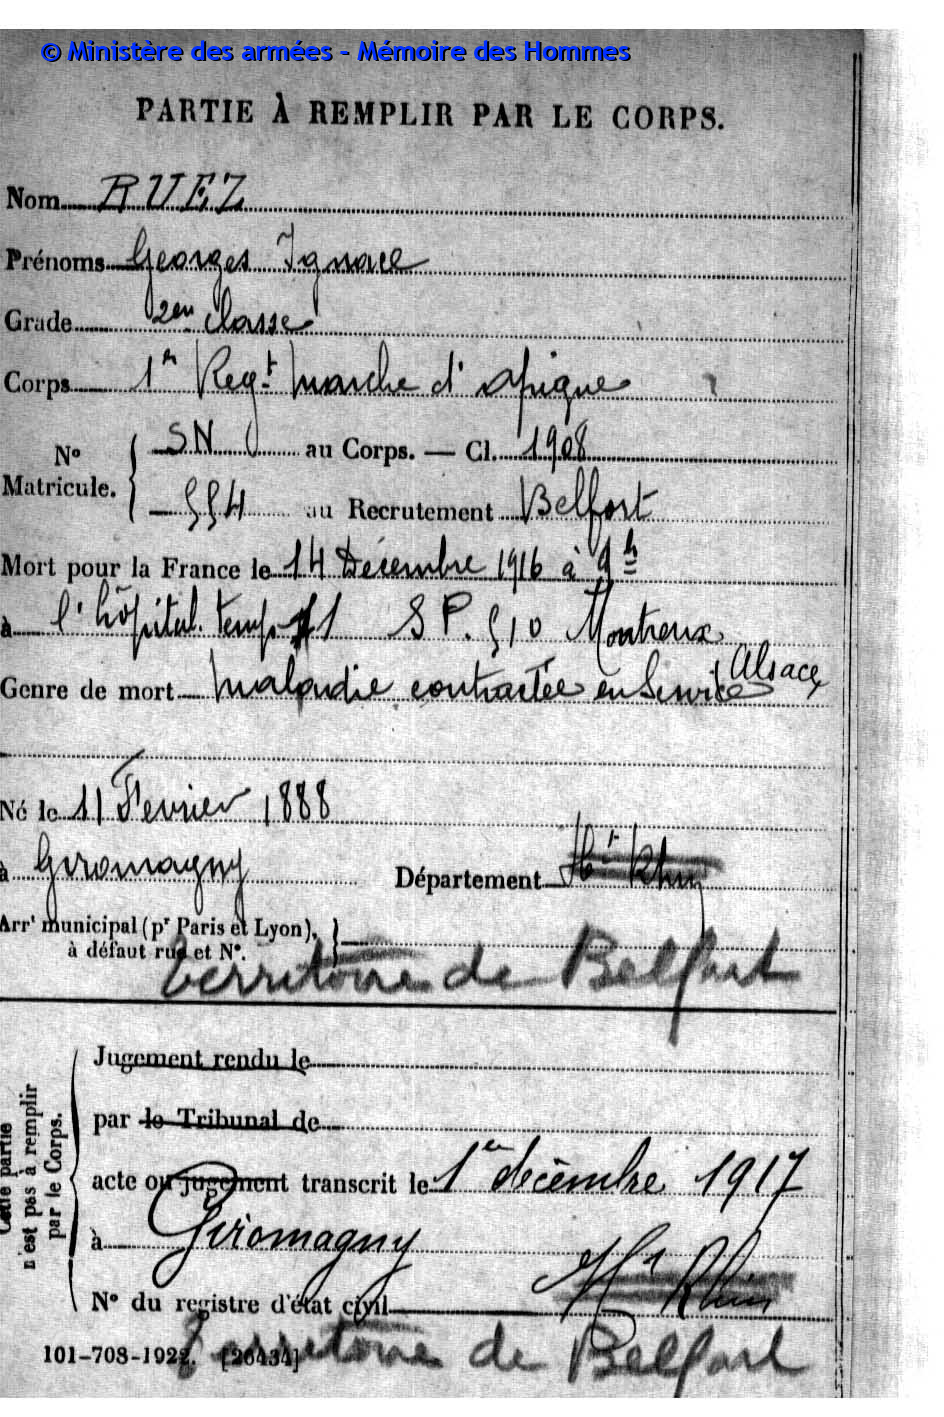 © Ministère des armées - Mémoire des Hommes
PARTIE À REMPLIR PAR LE CORPS.
Nom RUEZ
Prénoms Georges Ignace
Grade 2em classe
Corps 1er Regt marche d'afrique
No Matricule. { SN au Corps. — Cl. 1908
554 au Recrutement Belfort
Mort pour la France le 14 Décembre 1916 à 9h
à l'hôpital temp 11 SP. 510 Montreux
Alsace
Genre de mort maladie contractée en service
Né le 11 Fevrier 1888
à Giromagny Département Ht Rhin
Arrt municipal (pr Paris et Lyon),
à défaut rue et No.
territoire de Belfort
Cette partie n'est pas à remplir par le Corps.
Jugement rendu le
par le Tribunal de
acte ou jugement transcrit le 1er décembre 1917
à Giromagny
Ht Rhin
No du registre d'état civil
Territoire de Belfort
101-708-1922. [26434]